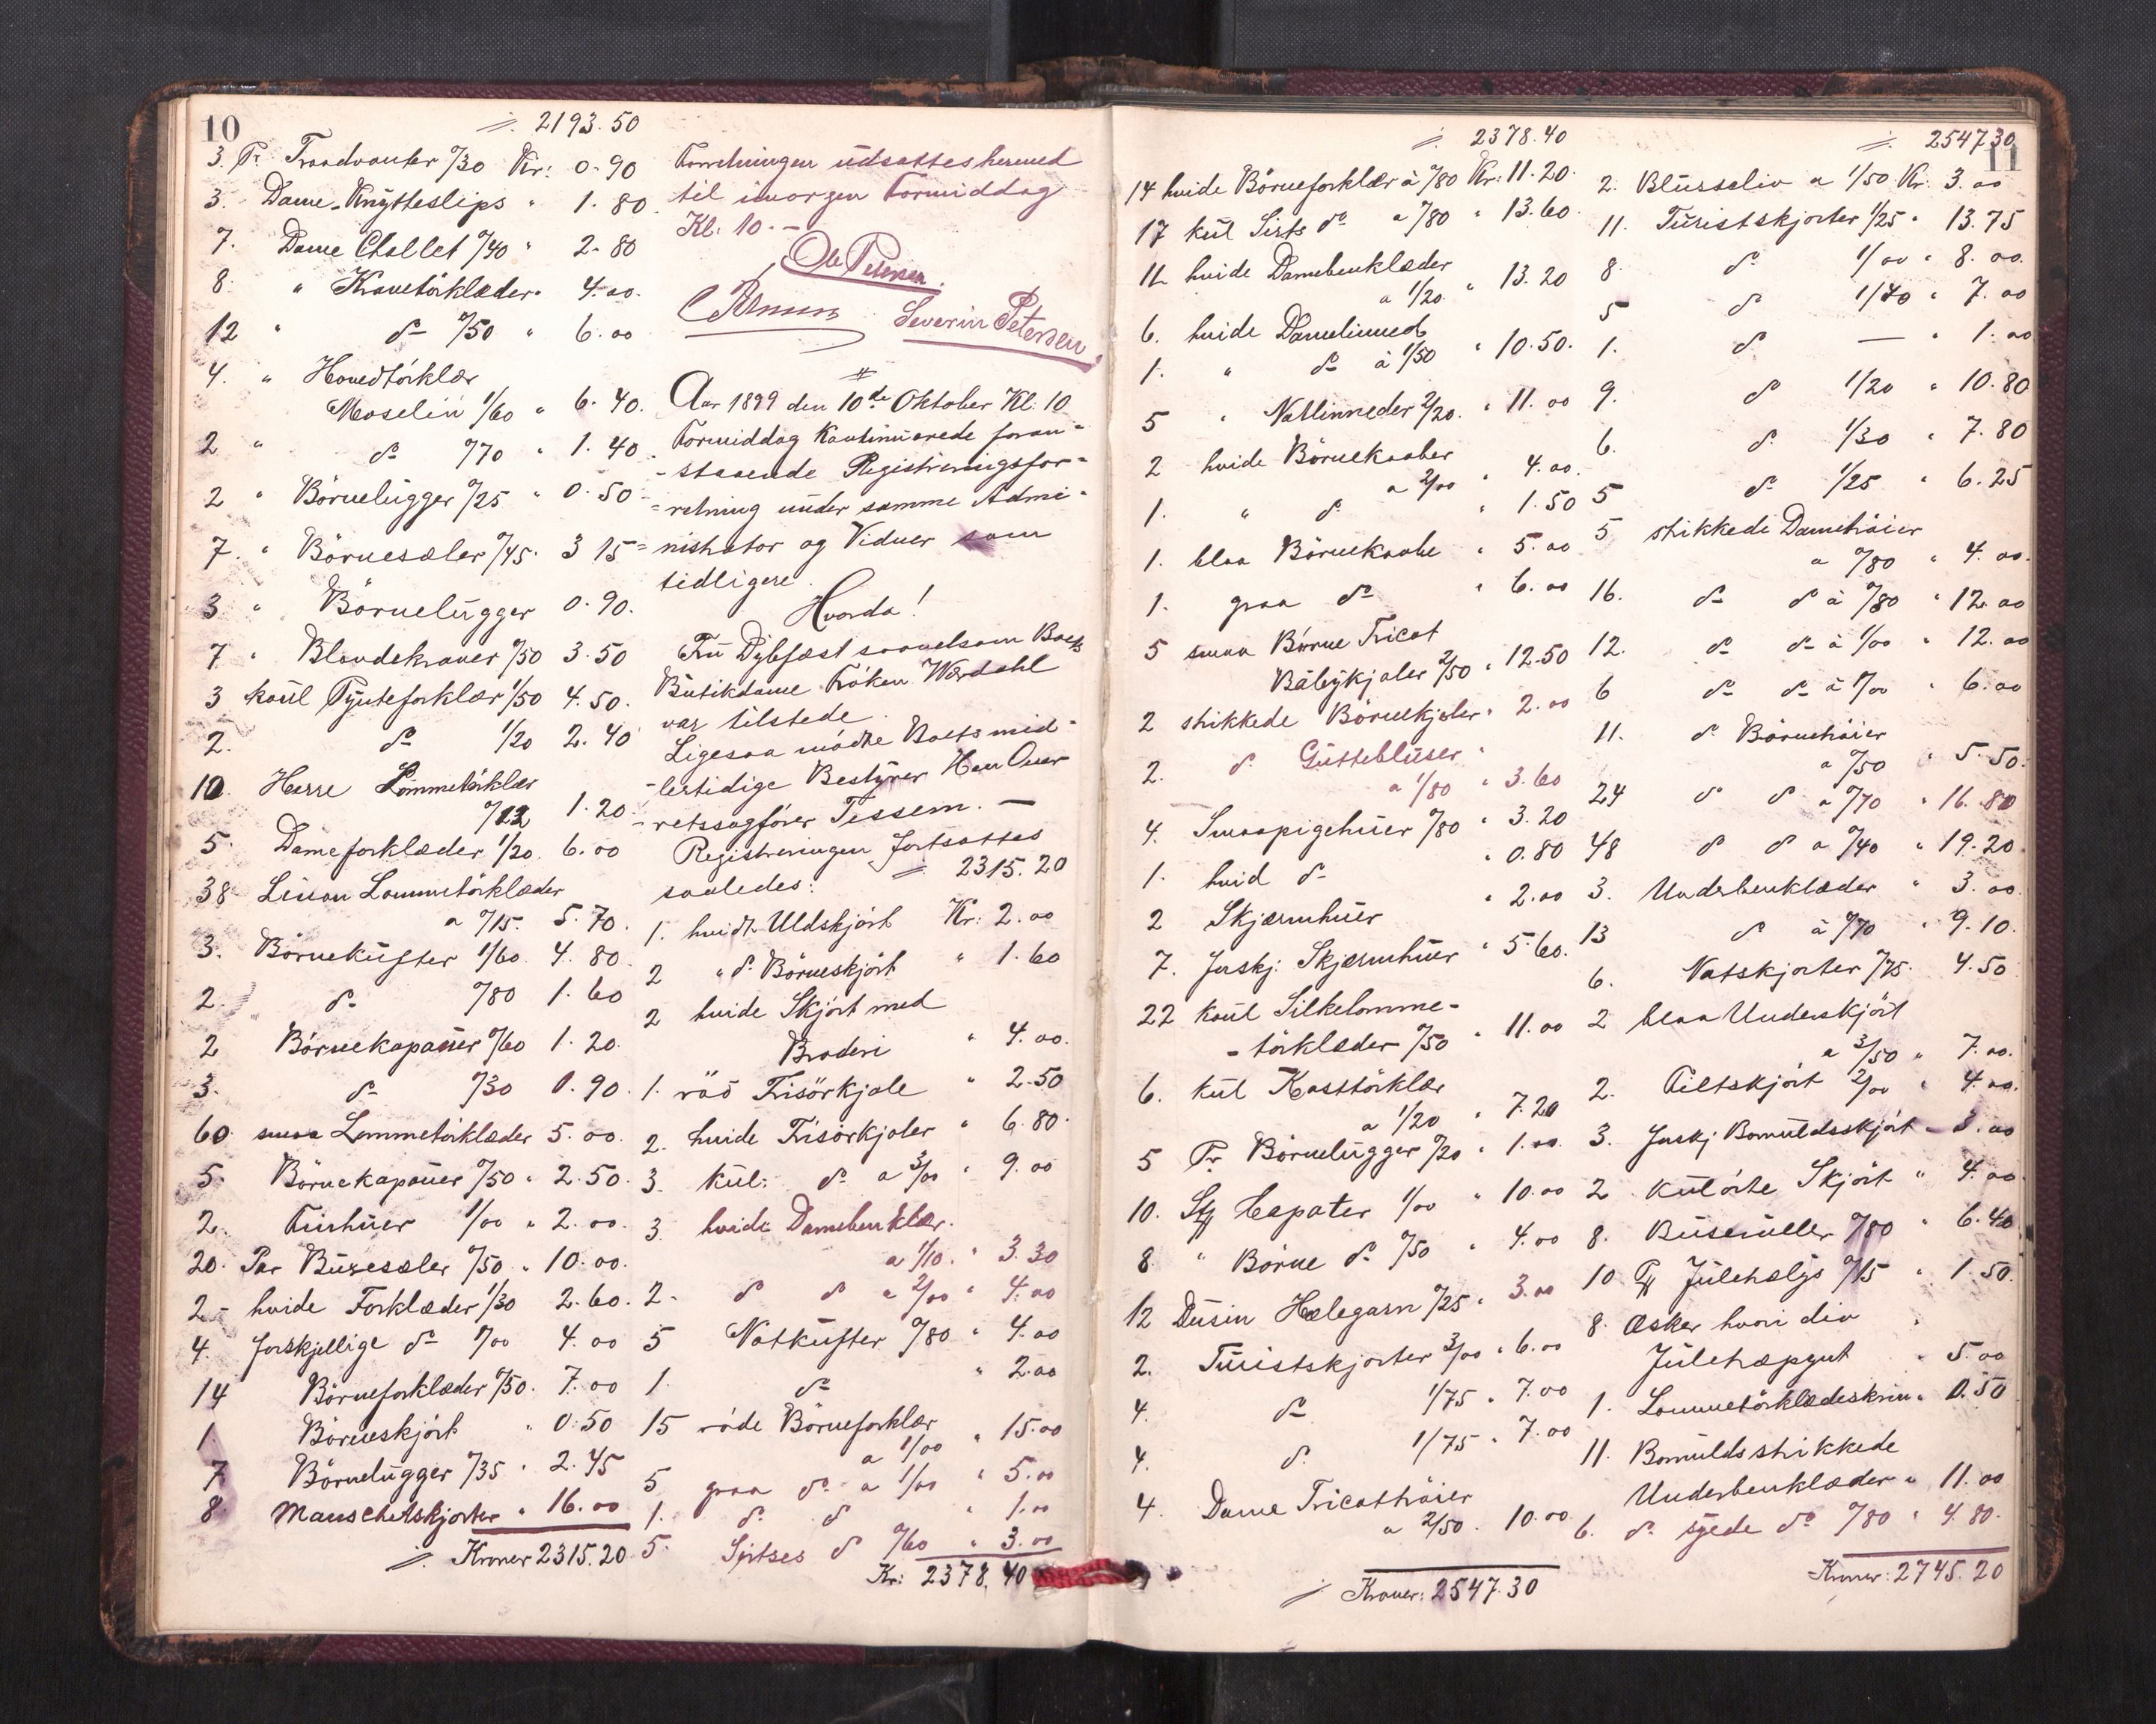 10
=. 2193.50
3. Pr. Traadvanter 0/30 Kr: 0.90
3. Dame-Knytteslips " 1.80
7. Dame Challet 0/40 " 2.80
8. " Kravetörklæder " 4.00
12 " do 0/50 " 6.00
4. " Hovedtörklær
Moselin 1/60 " 6.40.
2 " do 0/70 " 1.40
2 " Börnelugger 0/25 " 0.50
7. " Börnesæler 0/45. 3 15
3 " Börnelugger 0.90.
7 " Blondekraver 0/50 3.50
3 koul Pynteforklær 1/50 4.50.
2. do 1/20 2.40
10 Herre Lommetörklær
0/12 1.20
5. Dameforklæder 1/20. 6.00
38 Linon Lommetörklæder
a 0/15. 5.70.
3. Börnekufter 1/60 4.80
2. do 0/80 1.60
2 Börnekapauer 0/60 1.20.
3. do 0/30 0.90.
60 smaa Lommetörklæder 5.00.
5. Börnekapauer 0/50 " 2.50.
2. Turhuer 1/00 " 2.00.
20. Par Buxesæler 0/50 " 10.00.
2 - hvide Forklæder 1/30 2.60.
4. forskjellige do 1/00 4.00
14 Börneforklæder 0/50. 7.00
1. Börneskjört " 0.50
7 Börnelugger 0/35 " 2.45
8. Manschetskjorter " 16.00
=. Kroner 2315.20
Forretningen udsattes hermed
til imorgen Formiddag
Kl. 10. -
Ole Petersen.
Severin Petersen.
Aar 1899 den 10de Oktober Kl. 10
Formiddag kontinuerede foran-
-staaende Registreringsfor-
-retning under samme Admi-
nistrator og Vidner som
tidligere.
Hvorda!
Fru Dybfest saavelsom Boets
Butikdame Fröken Wærdahl
var tilstede.
Ligesaa mödte Boets mid-
-lertidige Bestyrer Herr Over-
-retssagförer Tessem. -
Registreringen fortsattes
saaledes: =. 2315.20
1. hvidt Uldskjört Kr: 2.00
2 " do Börneskjört " 1.60
2 hvide Skjört med
Broderi " 4.00.
1. röd Frisörkjole " 2.50
2. hvide Frisörkjoler " 6.80.
3. kul: do a 3/00 " 9.00
3. hvide Damebenklær.
a 1/10. " 3.30
2. do do a 2/00 " 4.00
5 Natkufter 0/80 " 4.00
1. do " 2.00
15 röde Börneforklær
a 1/00 " 15.00
5. graa do a 1/00 " 5.00
1. do do " 1.00
5. Sirtses do 0/60 " 3.00
Kr: 2378.40
=. 2378.40
14 hvide Börneforklær à 0/80 Kr: 11.20.
17 kul Sirts do a 0/80 " 13.60.
11 hvide Damebenklæder
a 1/20. " 13.20
6. hvide Damelinned
1. " do à 1/50 " 10.50.
5 " Natlinneder 2/20. " 11.00
2 hvide Börnekaaber
a 2/00 " 4.00.
1. " do " 1.50
1. blaa Börnekaabe " 5.00
1. graa do " 6.00
5 smaa Börne Tricot
Babykjoler 2/50 " 12.50
2 strikkede Börnekjoler " 2.00
2. do Gutteblüser "
a 1/80 " 3.60
4. Smaapigehuer 0/80 " 3.20
1. hvid do " 0.80
2 Skjærmhuer " 2.00
7. forskj. Skjærmhuer " 5.60.
22 koul Silkelomme-
-törklæder 0/50 " 11.00
6. kul Kasttörklær
a 1/20 " 7.20
5 Pr Börnelugger 0/20 " 1.00.
10. Stk Capater 1/00 " 10.00
8 " Börne do 0/50 " 4.00
12 Dusin Hælegarn 0/25 " 3.00
2. Turistskjorter 3/00 " 6.00
4. do 1/75 " 7.00
4. do 1/75 " 7.00
4. Dame Tricottröier
a 2/50 . 10.00
=. Kroner: 2547.30
=. 2547.30
11
2. Blusseliv a 1/50 Kr. 3.00
11. Turistskjorter 1/25 " 13.75
8. do 1/00 " 8.00.
5 do 1/40 " 7.00
1. do — " 1.00
9. do 1/20 " 10.80
6. do 1/30 " 7.80
5 do 1/25 " 6.25
5 strikkede Dametröier
a 0/80 " 4.00.
16. do do à 0/80 " 12.00
12. do do à 1/00 " 12.00
6 do do à 1/00 " 6.00
11. do Börnetröier
a 0/50 " 5.50.
24 do do a 0/70 " 16.80
48 do do a 0/40 " 19.20
3. Underbenklæder " 3.00.
13 do à 0/70 " 9.10.
6. Natskjorter 0/75. 4.50
2 blaa Underskjört
a 3/50 " 7.00.
2. Filtskjört 2/00 " 4.00.
3. forskj. Bomuldsskjört - 3.00
2 kulörte Skjört " 4.00
8. Buseruller 0/80 " 6.40
10 Pk Julehelgs 0/15 " 1.50.
8. Æsker hvori div
Juletræpynt " 5.00
1. Lommetörklædeskrin " 0.50
11. Bomuldsstrikkede
Underbenklæder " 11.00
6. do syede do 0/80 " 4.80.
Kroner: 2745.20